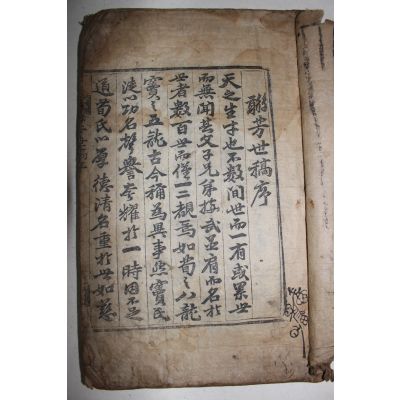 聯芳世稿序
天之生才也不數間世而一有或累世
而無聞甚父子兄弟接武並肩而名於
世者數百世而僅一二覩焉如荀之八龍
竇之五龍古今稱爲異事然竇氏
徒以功名聲譽夸耀於一時固不足
道荀氏以厚德清名重於世如慈